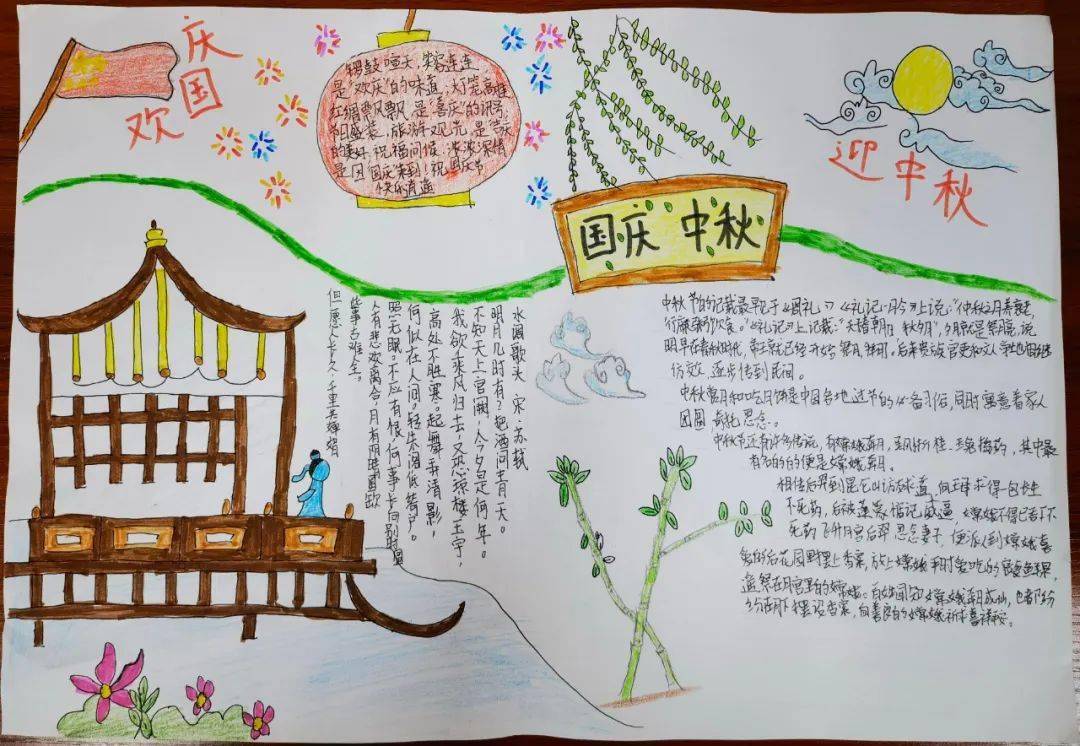 欢国庆
锣鼓喧天
是欢庆的味道,大红灯笼高挂
红绸飘飘是喜庆的讯号
节日盛装,旅游观光,是
的美好,祝福问候,浓浓深情
是因国庆来到!祝国庆节
快乐逍遥
国庆 中秋
迎中秋
水调歌头 宋·苏轼
明月几时有?把酒问青天。
不知天上宫阙,今夕是何年。
我欲乘风归去,又恐琼楼玉宇,
高处不胜寒。起舞弄清影,
何似在人间。转朱阁,低绮户。
照无眠。不应有恨,何事长向别时圆
人有悲欢离合,月有阴晴圆缺
此事古难全。
但愿人长久,千里共婵娟
中秋节的记载最早于《周礼》,《礼记·月令》上说:“仲秋之月养衰老,
行糜粥饮食。”《礼记》上记载:“天子春朝日,秋夕月”,夕月就是祭月亮,说
明早在春秋时代,帝王就已经开始祭月、拜月。后来贵族官吏和文人学士也相继
仿效,逐步传到民间。
中秋赏月和吃月饼是中国各地过节的必备习俗,同时寓意着家人
团圆 寄托思念。
中秋节还有许多传说,有嫦娥奔月,吴刚折桂,玉兔捣药,其中最
有名的的便是嫦娥奔月。
相传后羿到昆仑山访友求道,向王母求得一包长生
不死药,后被逢蒙惦记威逼,嫦娥不得已吞下不
死药飞升月宫后羿思念妻子,便派人到嫦娥喜
爱的后花园里摆上香案,放上嫦娥平时爱吃的蜜食鲜果,
遥祭在月宫里的嫦娥。百姓闻知嫦娥奔月成仙,也都纷
纷在月下摆设香案,向善良的嫦娥祈求吉祥平安。